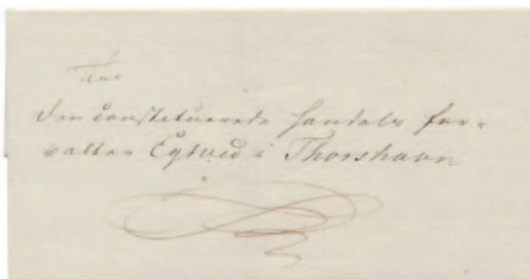 Til
den constituerede Handels for-
valter Eytved i Thorshavn